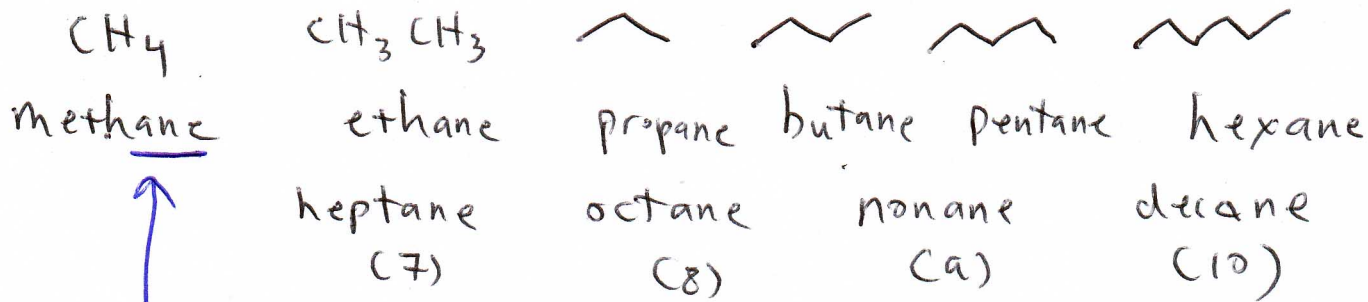 CH4 CH3 CH3
methane ethane propane butane pentane hexane
heptane octane nonane decane
(7) (8) (9) (10)